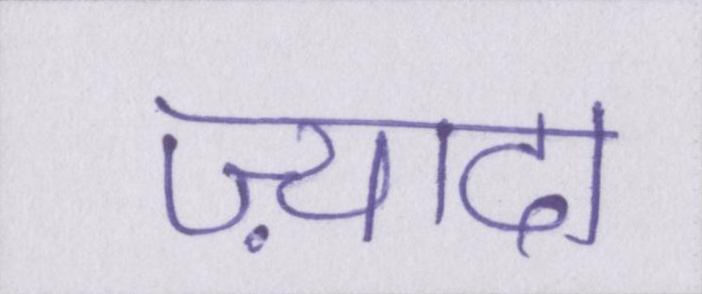 ज़्यादा